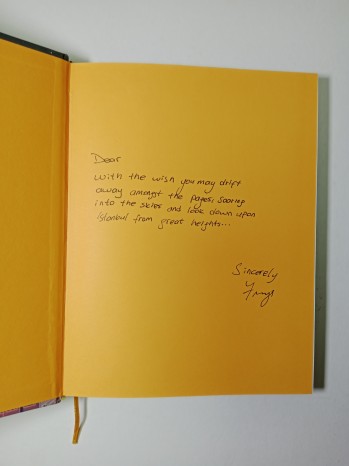 Dear
With the wish you may drift
away amongst the pages, soaring
into the skies and look down upon
Istanbul from great heights...
Sincerely